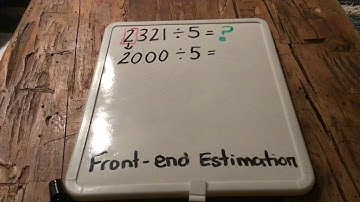 2321÷5=?
2000÷5=
Front-end Estimation